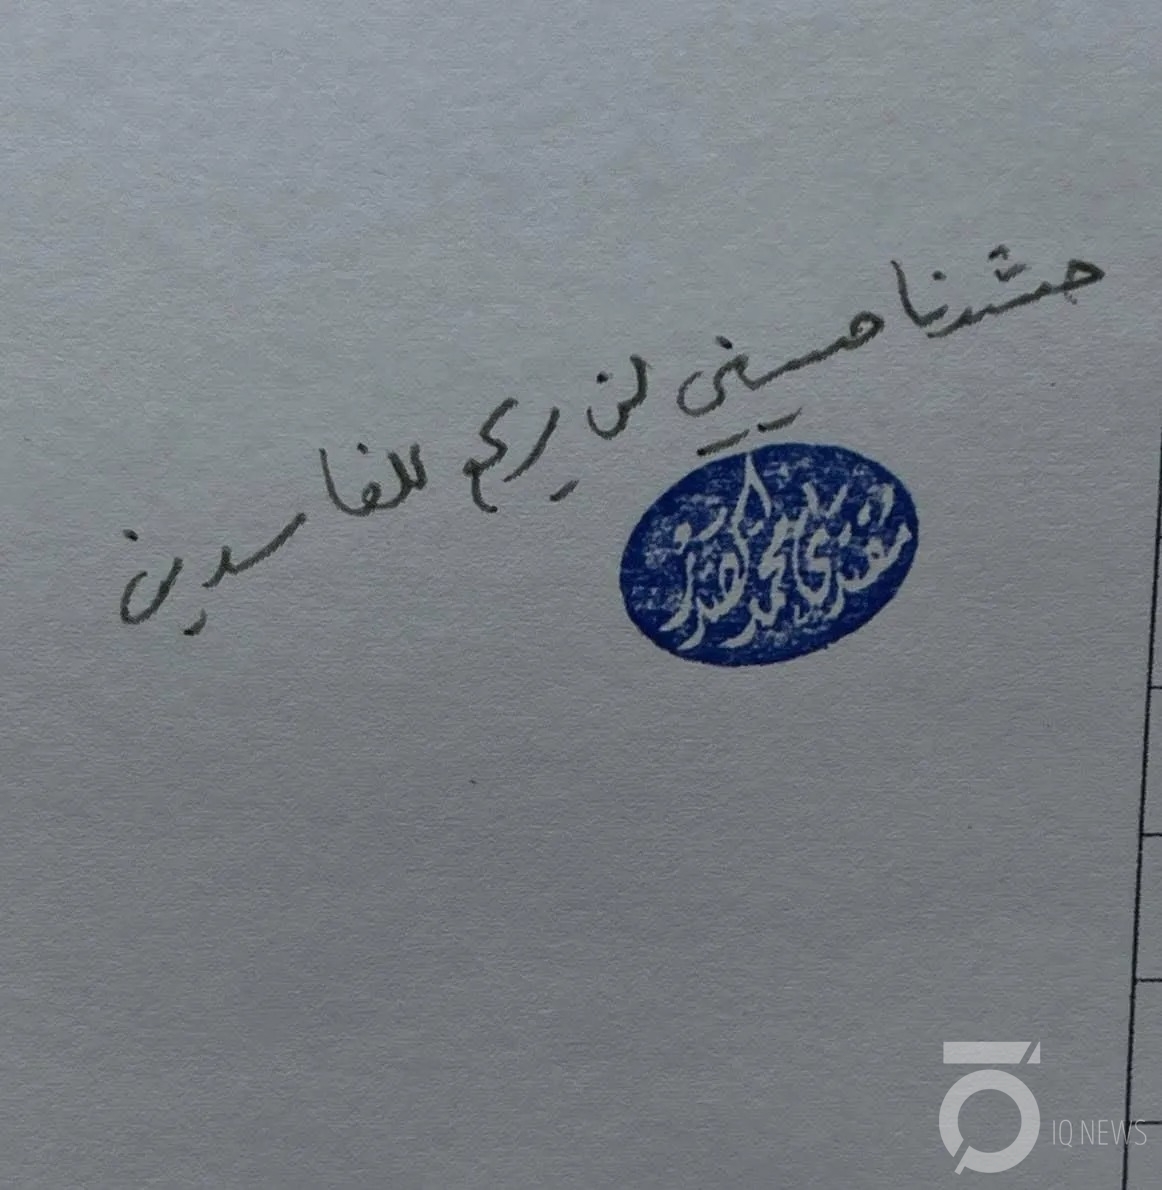 حشدنا حسيني لن يركع للفاسدين
مقتدى السيد محمد الصدر
IQ NEWS